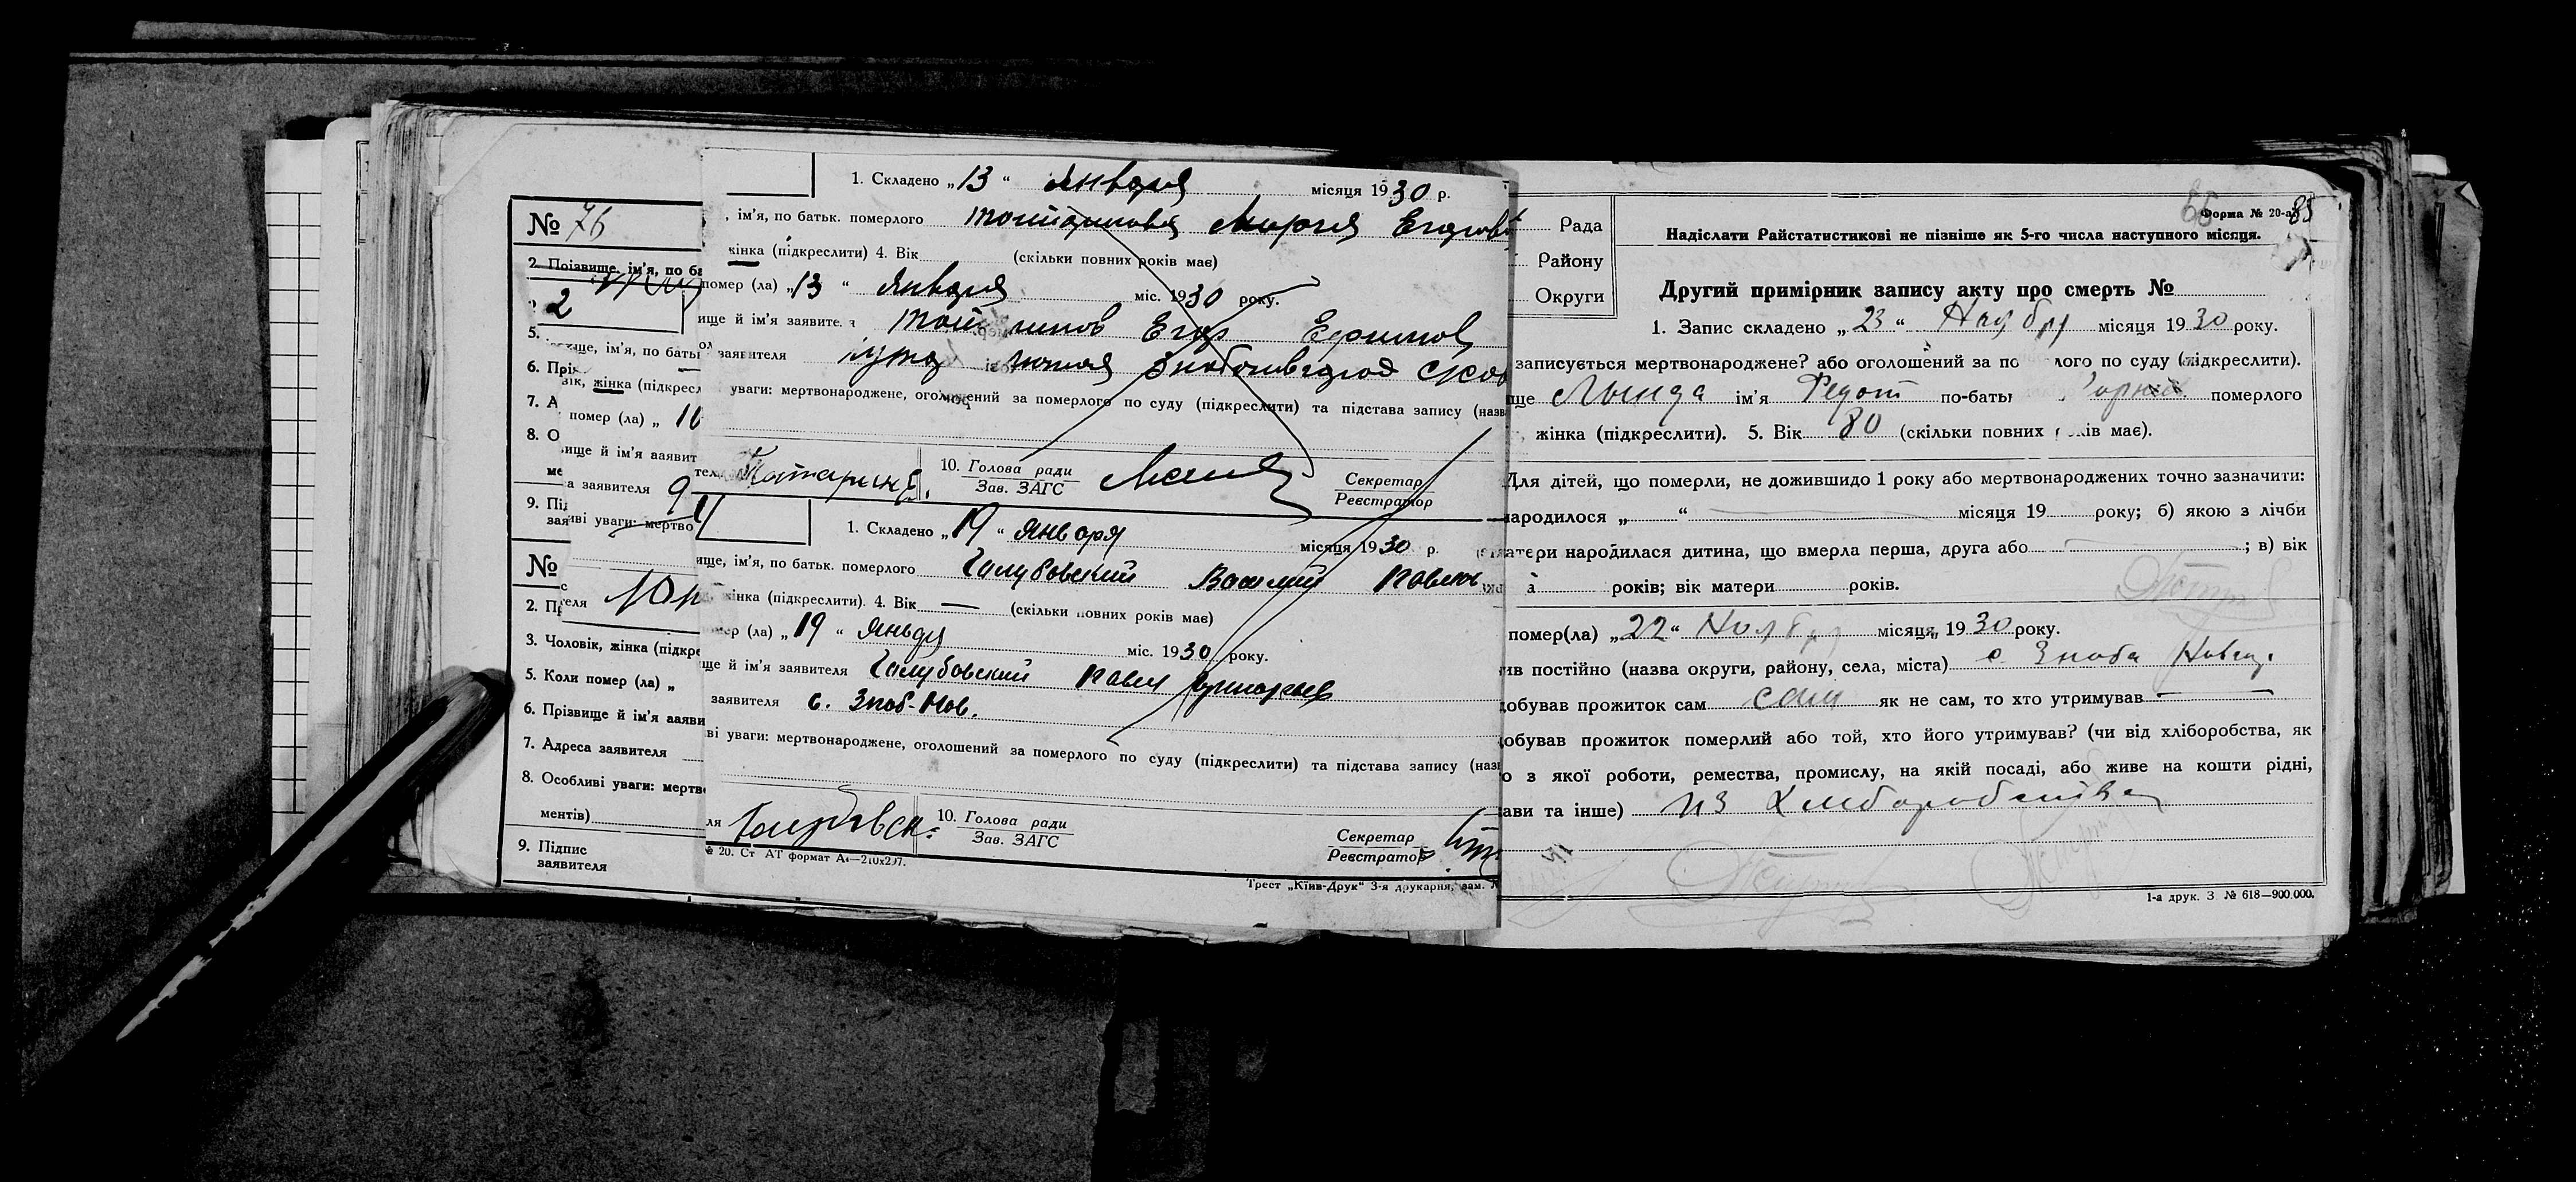 № 76
2. Прізвище, ім'я, по ба
2
5.
ізвище, ім'я, по батьк
6. Прі
вік, жінка (підкресл
7. А
помер (ла) „ 10
8. О
вище й ім'я заявит
ме
а заявителя 9
9. Під
заяв
ві уваги: мертво
№
теля
2. Пр
3. Чоловік, жінка (підкре
5. Коли помер (ла) „
6. Прізвище й ім'я заяви
7. Адреса заявителя
8. Особливі уваги: мертво
ментів)
9. Підпис
заявителя
1. Складено „13“ Января місяця 1930 р.
, ім'я, по батьк. померлого Мария Егоров
жінка (підкреслити) 4. Вік (скільки повних років має)
помер (ла) „13“ Января міс. 1930 року.
ище й ім'я заявителя Егор Ефимов
заявителя
уваги: мертвонароджене, оголошений за померлого по суду (підкреслити) та підстава запису (назв
10. Голова ради
Зав. ЗАГС
Секретар
Реєстратор
1. Складено „19“ января місяця 1930 р.
ище, ім'я, по батьк. померлого Голубовский Василий Павлов
жінка (підкреслити). 4. Вік — (скільки повних років має)
помер (ла) „19“ Январ міс. 1930 року.
ще й ім'я заявителя Голубовский Павел
заявителя с. Зноб-Нов.
ві уваги: мертвонароджене, оголошений за померлого по суду (підкреслити) та підстава запису (назв
ля Голубовск
10. Голова ради
Зав. ЗАГС
Секретар
Реєстратор
№ 20. Ст АТ формат А4—210х297.
Трест „Київ-Друк“ 3-я друкарня, зам.
Рада
Району
Округи
85
Форма № 20-а
Надіслати Райстатистикові не пізніше як 5-го числа наступного місяця.
Другий примірник запису акту про смерть №
1. Запис складено „23“ Ноября місяця 1930 року.
записується мертвонароджене? або оголошений за по лого по суду (підкреслити).
ще Лында ім'я Федот по-бать померлого
, жінка (підкреслити). 5. Вік 80 (скільки повних років має).
Для дітей, що померли, не доживши до 1 року або мертвонароджених точно зазначити:
народилося „ “ місяця 19 року; б) якою з лічби
матери народилася дитина, що вмерла перша, друга або ; в) вік
років; вік матери років.
помер(ла) „22“ Ноября місяця, 1930 року.
ив постійно (назва округи, району, села, міста) с. Зноба Новгор.
обував прожиток сам сам як не сам, то хто утримував —
обував прожиток померлий або той, хто його утримував? (чи від хліборобства, як
о з якої роботи, ремества, промислу, на якій посаді, або живе на кошти рідні,
ави та інше) из хлиборобства
1-а друк. З. № 618—900.000.